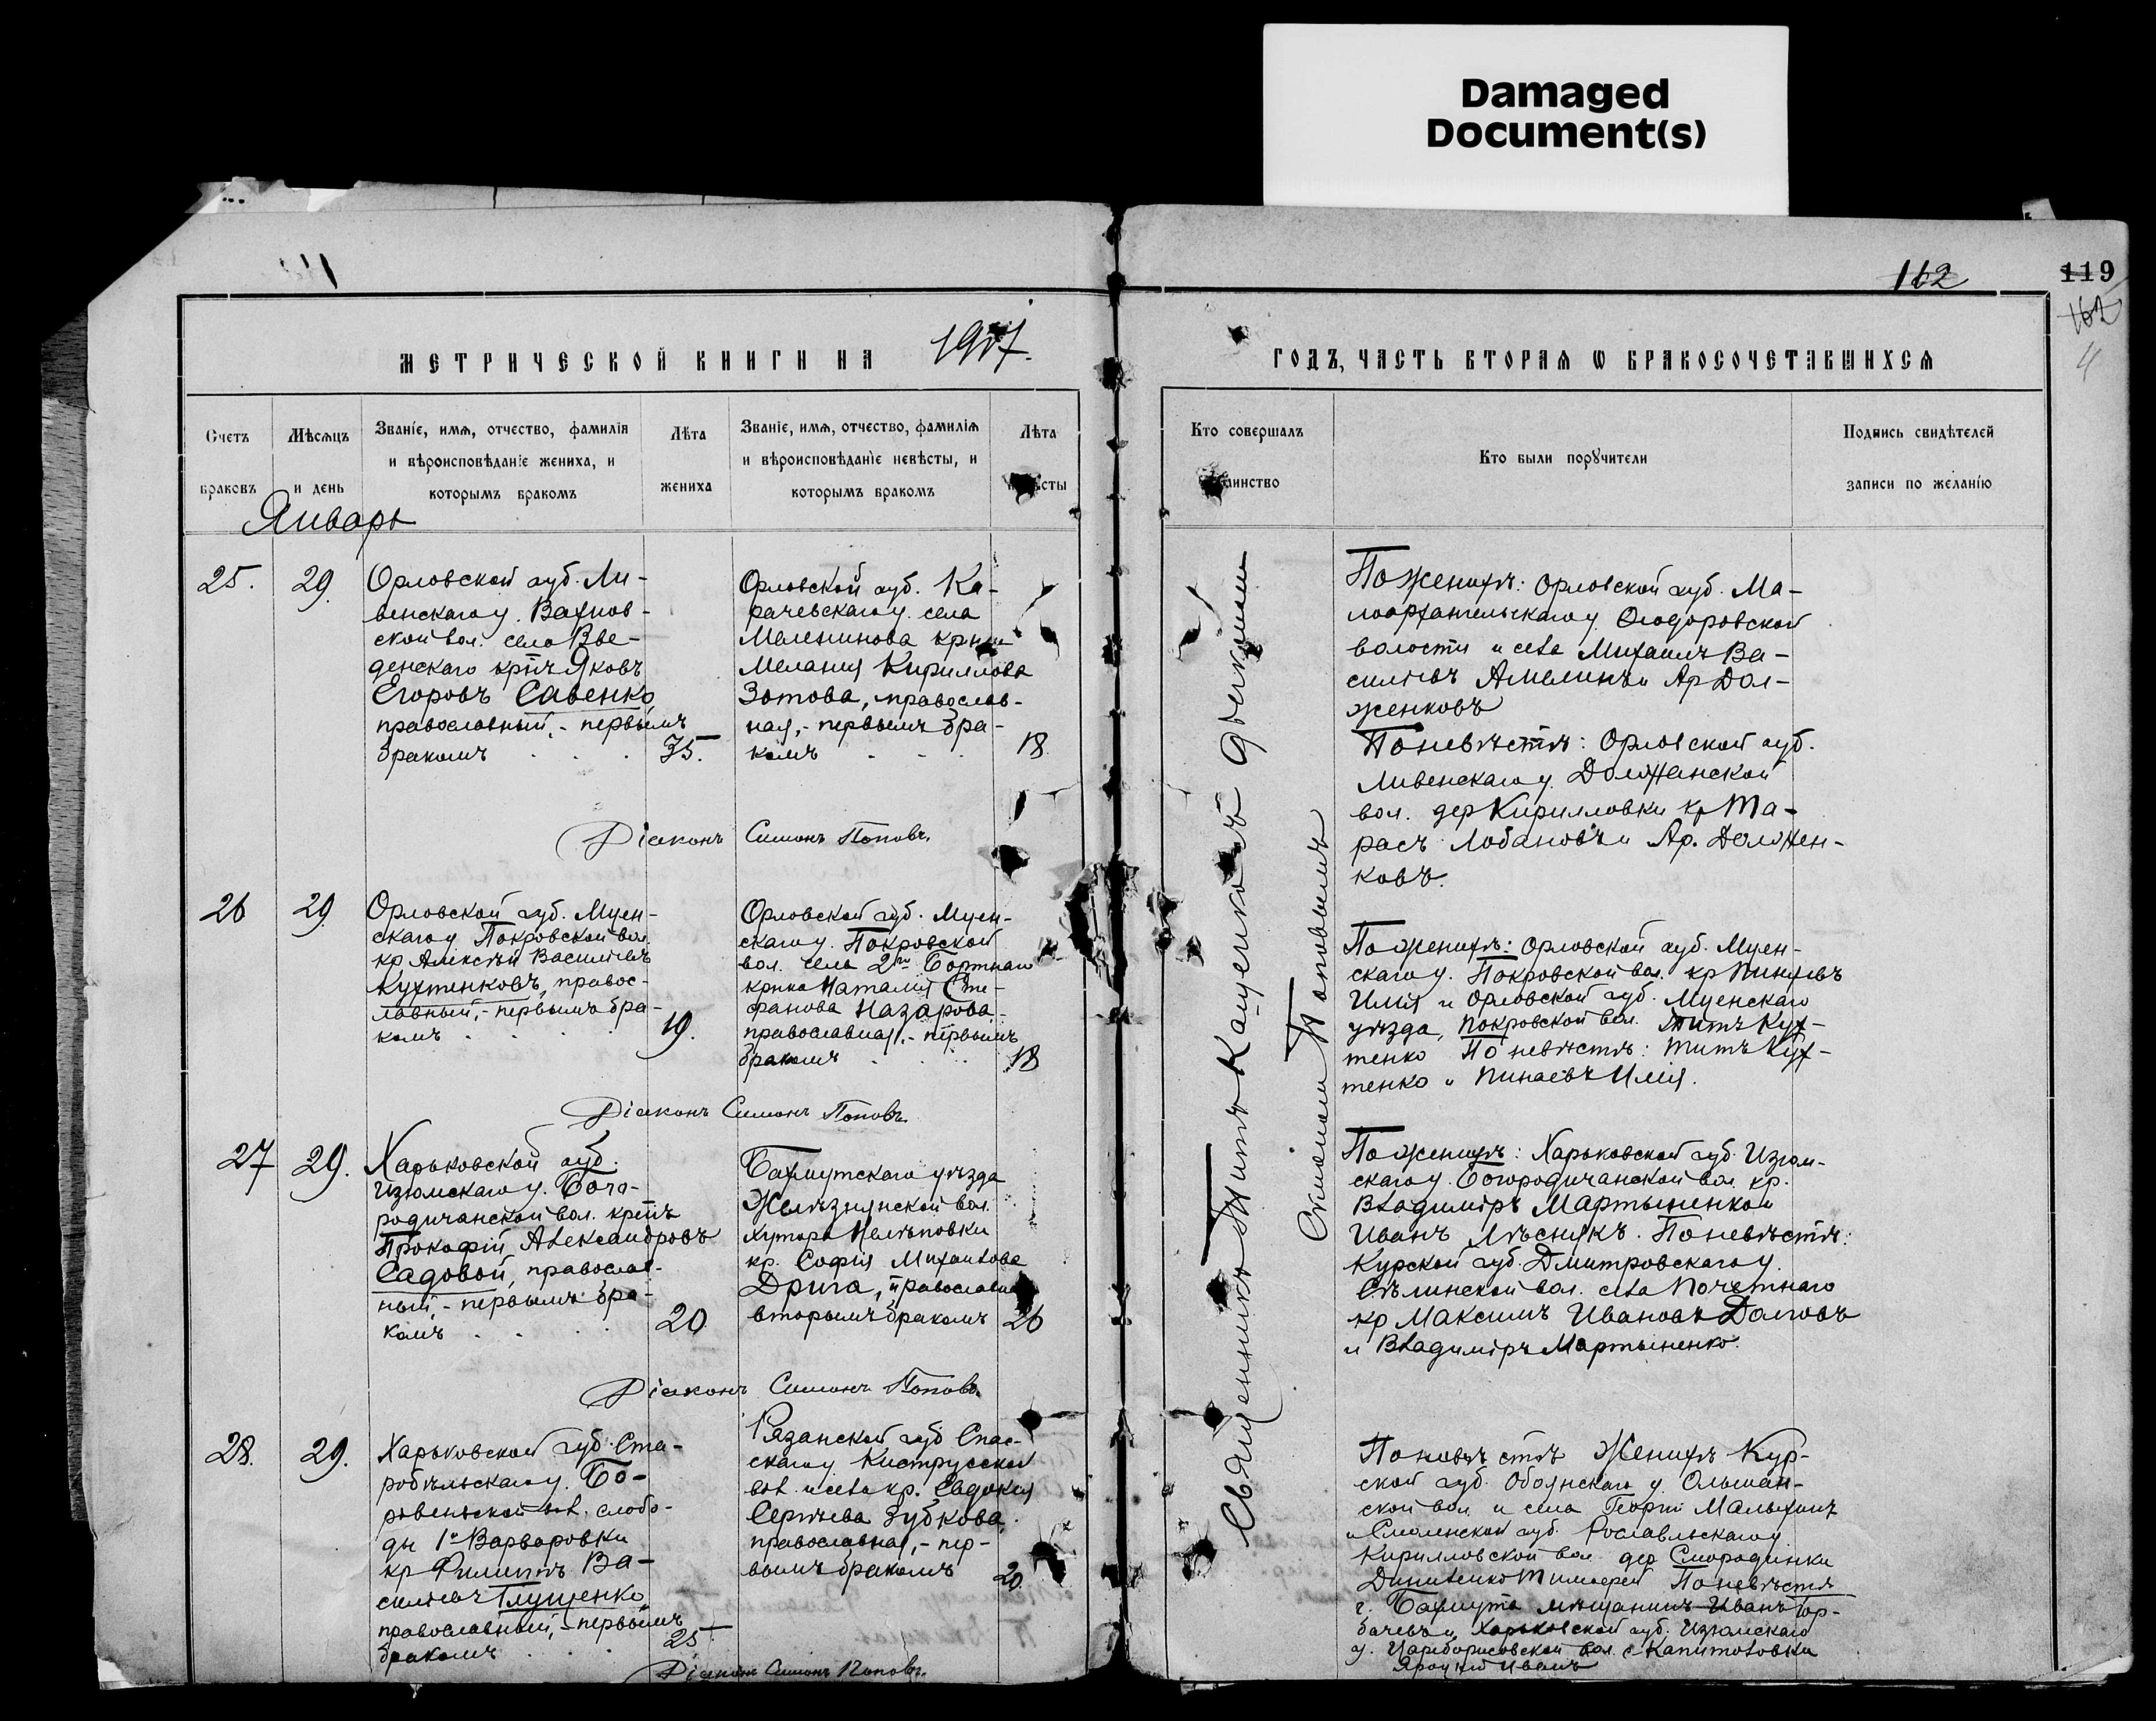 Damaged
Document(s)
112
119
162
4
МЕТРИЧЕСКОЙ КНИГИ НА 1907.
ГОДЪ, ЧАСТЬ ВТОРАЯ Ѡ БРАКОСОЧЕТАВШИХСЯ
Счетъ
браковъ
Мѣсяцъ
и день
Званіе, имя, отчество, фамилія
и вѣроисповѣданіе жениха, и
которымъ бракомъ
Лѣта
жениха
Званіе, имя, отчество, фамилія
и вѣроисповѣданіе невѣсты, и
которымъ бракомъ
Лѣта
Кто совершалъ
Кто были поручители
Подпись свидѣтелей
записи по желанію
Январь
25.
29.
Орловской губ. Ли-
венскаго у. Вахнов-
ской вол. село Вве-
денскаго кр̅нъ Яковъ
Егоровъ Савенко
православный,- первымъ
бракомъ
35.
Орловской губ. Ка-
рачевскаго у. села
крнка
Мелания Кириллова
Зотова, православ-
ная,- первымъ бра-
комъ
18
По женихѣ: Орловской губ. Ма-
лоархангельскаго у. Ѳеодоровской
волости и села Михаилъ Ва-
сильевъ Амелинъ и Ар Дол-
женковъ
По невѣстѣ: Орловской губ.
Ливенскаго у. Должанской
вол. дер Кирилловки кр Та-
расъ Лобановъ и Ар. Должен-
ковъ.
Діаконъ Симонъ Поповъ.
26
29
Орловской губ. Мцен-
скаго у. Покровской вол.
кр Алексѣй Васильевъ
Кухтенковъ, правос-
лавный,- первымъ бра-
комъ
19.
Орловской губ. Мцен-
скаго у. Покровской
вол. села 2го Бортнаго
крнка Наталия Сте-
фанова Назарова-
православная,- первымъ
бракомъ
18
По женихѣ: Орловской губ. Мцен-
скаго у. Покровской вол. кр
Илія и Орловской губ. Мценскаго
уѣзда, Покровской вол. Титъ Кух-
тенко По невѣстѣ: Титъ Кух-
тенко и Пинаевъ Илія.
Діаконъ Симонъ Поповъ.
27
29.
Харьковской губ.
Изюмскаго у. Бого-
родичанской вол. кр̅нъ
Прокофій Александровъ
Садовой, православ-
ный - первымъ бра-
комъ
20
Бахмутскаго уѣзда
Желѣзнянской вол.
хутора Нелѣповки
кр. Софія Михаилова
Дрига, православная
вторымъ бракомъ
26
По женихѣ: Харьковской губ. Изюм-
скаго у. Богородичанской вол. кр.
Владиміръ Мартыненко и
Иванъ Лѣсникъ. По невѣстѣ:
Курской губ. Дмитровскаго у.
вол. села Почетнаго
кр Максимъ Ивановъ Долговъ
и Владиміръ Мартыненко.
Діаконъ Симонъ Поповъ.
28.
29.
Харьковской губ. Ста-
робѣльскаго у. Бо-
ровеньской вол. слобо-
ды 1й Варваровки
кр Филиппъ Ва-
сильевъ Глущенко,
православный,- первымъ
бракомъ
25
Рязанской губ Спас-
скаго у. Киструсской
вол. и села кр. Евдокия
Сергѣева Зубкова,
православная,- пер-
вымъ бракомъ
20.
Женихѣ Кур-
ской губ. Обоянскаго у. Ольшан-
ской вол. и села Георгій Малыхинъ
и Смоленской губ. Рославльскаго у
Кирилловской вол. дер Смородинки
Тимофей По невѣстѣ
г. Бахмута мѣщанинъ Иванъ Гор-
бачевъ и Харьковской губ. Изюмскаго
у. Цареборисовской вол. с. Капитоловки
Яроцкій Иванъ
Діаконъ Симонъ Поповъ.
Священникъ Титъ Кащенко съ діакономъ
Симономъ Поповымъ